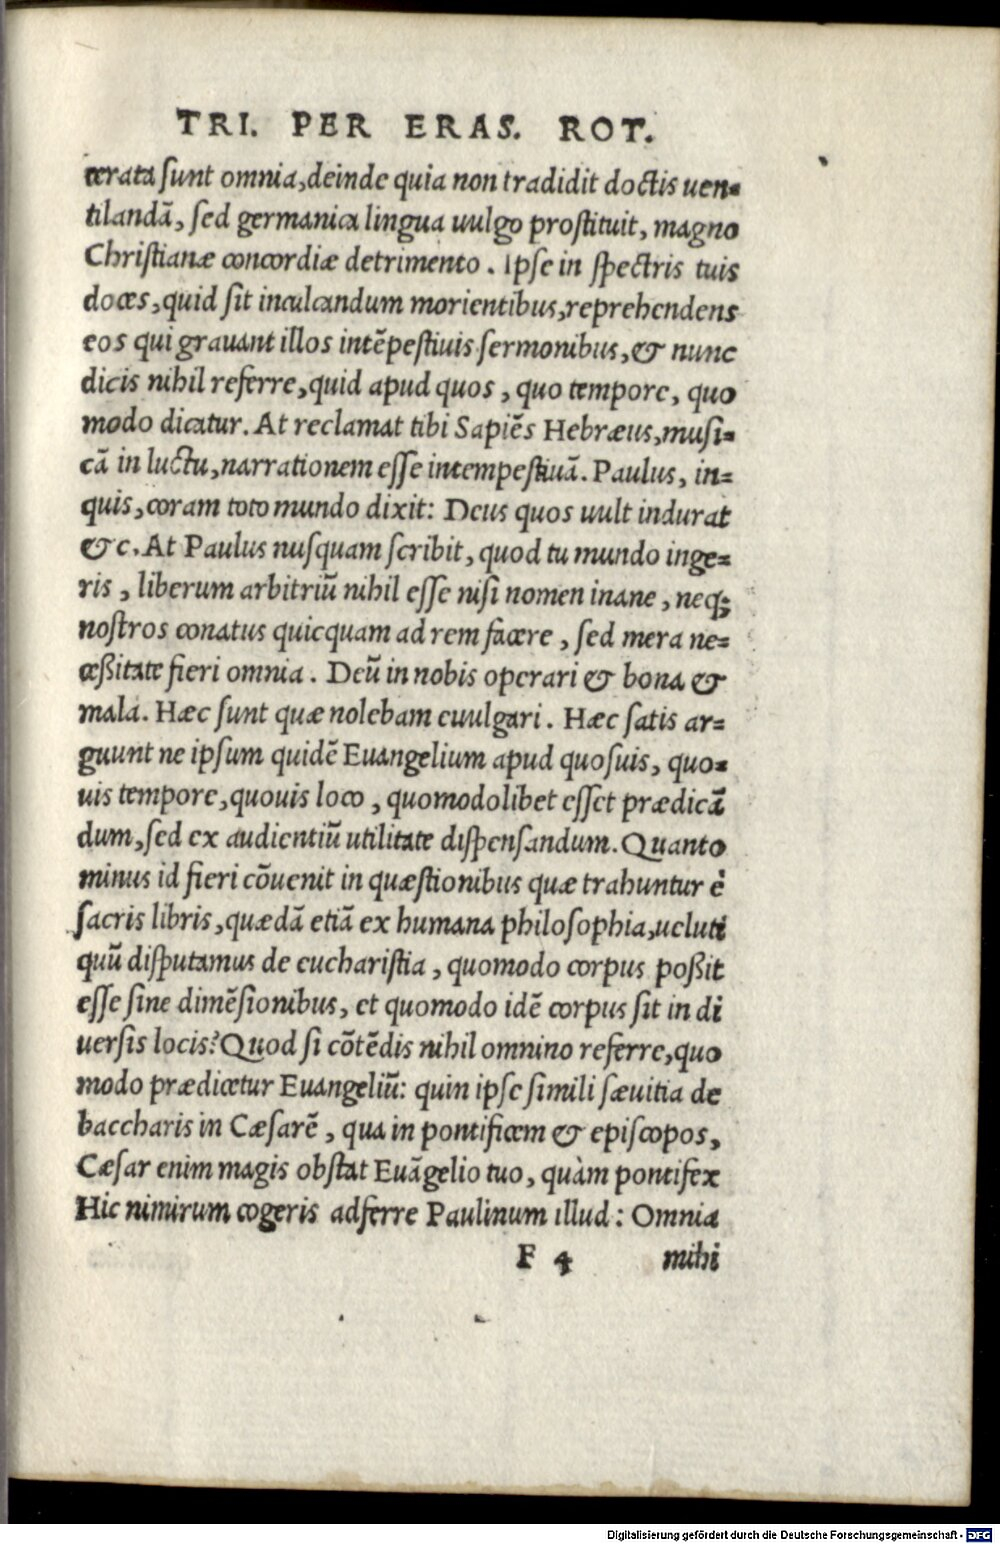 TRI. PER ERAS. ROT.
cerata sunt omnia, deinde quia non tradidit doctis uen=
tilandā, sed germanica lingua uulgo prostituit, magno
Christianæ concordiæ detrimento. Ipse in spectris tuis
doces, quid sit inculcandum morientibus, reprehendens
eos qui grauant illos intēpestiuis sermonibus, & nunc
dicis nihil referre, quid apud quos, quo tempore, quo
modo dicatur. At reclamat tibi Sapiēs Hebræus, musi=
cā in luctu, narrationem esse intempestiuā. Paulus, in=
quis, coram toto mundo dixit: Deus quos uult indurat
&c. At Paulus nusquam scribit, quod tu mundo inge=
ris, liberum arbitriū nihil esse nisi nomen inane, neq;
nostros conatus quicquam ad rem facere, sed mera ne=
ceßitate fieri omnia. Deū in nobis operari & bona &
mala. Hæc sunt quæ nolebam euulgari. Hæc satis ar=
guunt ne ipsum quidē Euangelium apud quosuis, quo=
uis tempore, quouis loco, quomodolibet esset prædicā
dum, sed ex audientiū utilitate dispensandum. Quanto
minus id fieri cōuenit in quæstionibus quæ trahuntur è
sacris libris, quædā etiā ex humana philosophia, ueluti
quū disputamus de eucharistia, quomodo corpus poßit
esse sine dimēsionibus, et quomodo idē corpus sit in di
uersis locis? Quod si cōtēdis nihil omnino referre, quo
modo prædicetur Euangeliū: quin ipse simili sæuitia de
baccharis in Cæsarē, qua in pontificem & episcopos,
Cæsar enim magis obstat Euāgelio tuo, quàm pontifex
Hic nimirum cogeris adferre Paulinum illud: Omnia
F 4 mihi
Digitalisierung gefördert durch die Deutsche Forschungsgemeinschaft - DFG